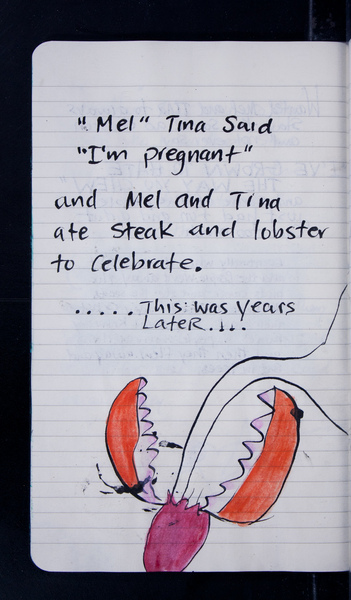 "Mel" Tina Said
"I'm pregnant"
and Mel and Tina
ate steak and lobster
to celebrate.
.....This was years
Later....